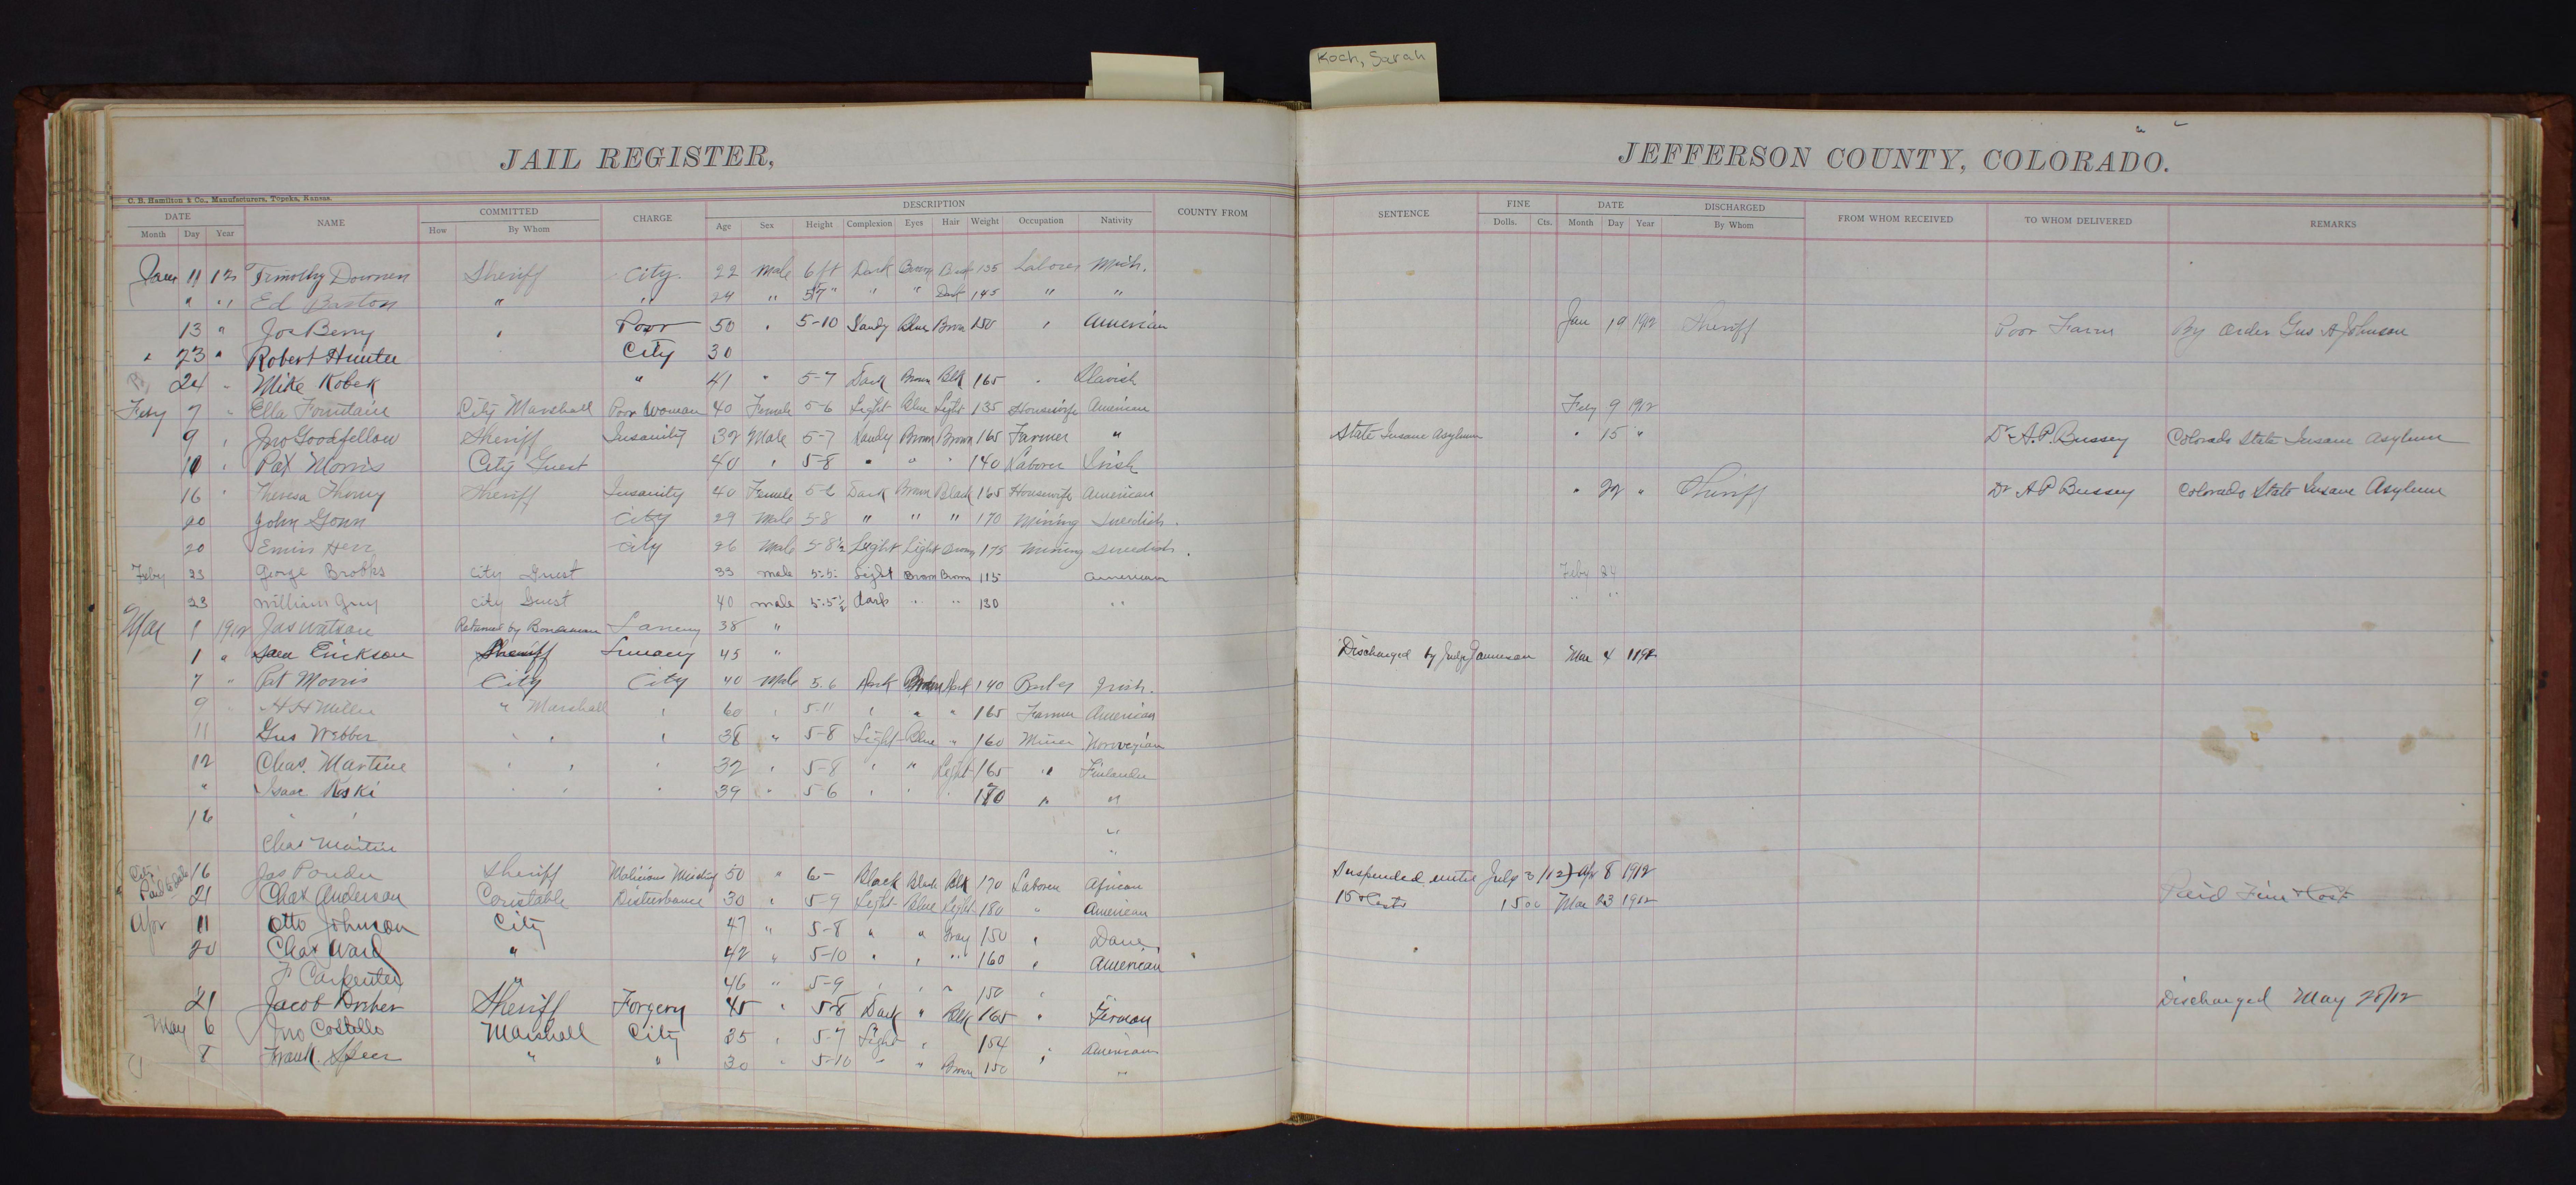 Koch, Sarah
JAIL REGISTER,
JEFFERSON COUNTY, COLORADO.
C. B. Hamilton & Co., Manufacturers, Topeka, Kansas.
DATE NAME COMMITTED CHARGE DESCRIPTION COUNTY FROM SENTENCE FINE DATE DISCHARGED FROM WHOM RECEIVED TO WHOM DELIVERED REMARKS
Month Day Year How By Whom Age Sex Height Complexion Eyes Hair Weight Occupation Nativity Dolls. Cts. Month Day Year By Whom
11 12 Timothy Sheriff City. 22 Male 6 ft Dark Brown 135 Laborer Mich.
" " Ed " " 24 " 5'7" " " Dark 145 " "
13 " Joe Berry " Poor 50 " 5-10 Sandy Blue Brown 150 " American Jan 19 1912 Sheriff Poor Farm By Order Gus A Johnson
" 23 " Robert Hunter City 30
24 " Mike Kobek " 41 " 5-7 Dark Brown Blk 165 " Slavish
Feby 7 " Ella Fountain City Marshall Poor Woman 40 Female 5-6 Light Blue Light 135 Housewife American Feby 9 1912
9 " Jno Goodfellow Sheriff Insanity 32 Male 5-7 Sandy Brown Brown 165 Farmer " State Insane Asylum " 15 " Dr. A. P. Bussey Colorado State Insane Asylum
10 " Pat Morris City Guest 40 " 5-8 " " " 140 Laborer Irish
16 " Theresa Sheriff Insanity 40 Female 5-6 Dark Brown Black 165 Housewife American " 22 " Sheriff Dr A P Bussey Colorado State Insane Asylum
20 John Gonn City 29 Male 5-8 " " " 170 Mining Swedish.
20 Herr City 26 Male 5-8½ Light Light Brown 175 Mining Swedish.
Feby 23 George Brooks City Guest 33 male 5-5- Light Brown Brown 115 American Feby 24
23 William City Guest 40 male 5-5½ dark " " 130 " " "
Mar 1 1912 Jas Watson Returned by Bondsman Larceny 38 "
1 " Erickson Sheriff Lunacy 45 " Discharged by Judge Mar 4
7 " Pat Morris City City 40 Male 5.6 Dark Brown 140 Irish.
9 H H Miller " Marshall " 60 " 5-11 " " " 165 Farmer American
11 Gus Webber " " " 38 " 5-8 Light Blue " 160 Miner Norwegian
12 Chas. Martine " " " 32 " 5-8 " " Light 165 " Finlander
" Isaac Koski " " " 39 " 5-6 " " " " "
16 " " "
Chas Martin "
Paid 16 Jas Ponder Sheriff Malicious Mischief 50 " 6- Black Black Blk 170 Laborer African Suspended until July 3/12 Apr 8 1912
21 Chas Anderson Constable Disturbance 30 " 5-9 Light Blue Light 180 " American 15 & Costs 15 00 Mar 23 1912 Paid Fine & Cost
Apr 11 Otto Johnson City 47 " 5-8 " " Gray 150 " Dane
20 Chas Ward " 42 " 5-10 " " " 160 " American
F Carpenter " 46 " 5-9 " " " 150 " "
21 Jacob Sheriff Forgery 45 " 5-8 Dark " Blk 165 " German Discharged May 28/12
May 6 Jno Costello Marshall City 35 " 5-7 Light " 154 American
8 Frank Speer " " 30 " 5-10 " " Brown 150 " "